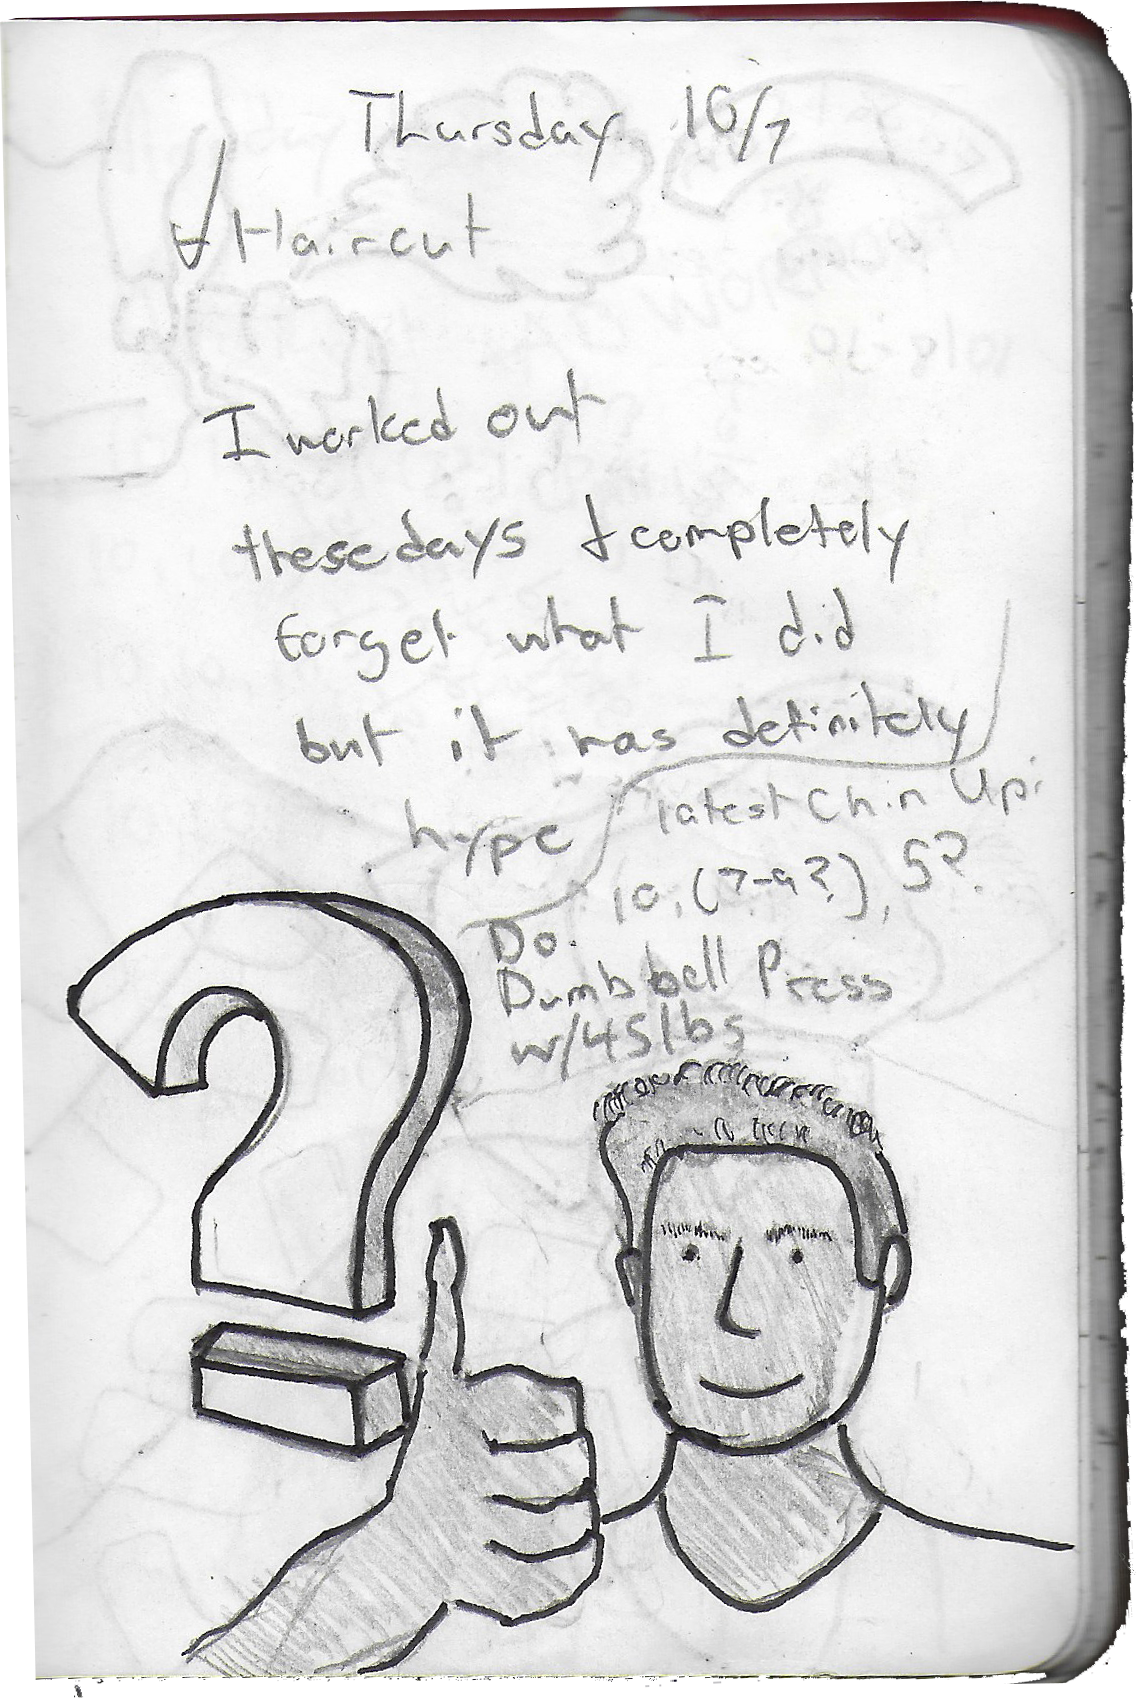 Thursday 10/7
Haircut
I worked out
these days & completely
forget what I did
but it was definitely
hype
latest Chin Up:
10, (7-9?), 5?
Do:
Dumbbell Press
w/45lbs